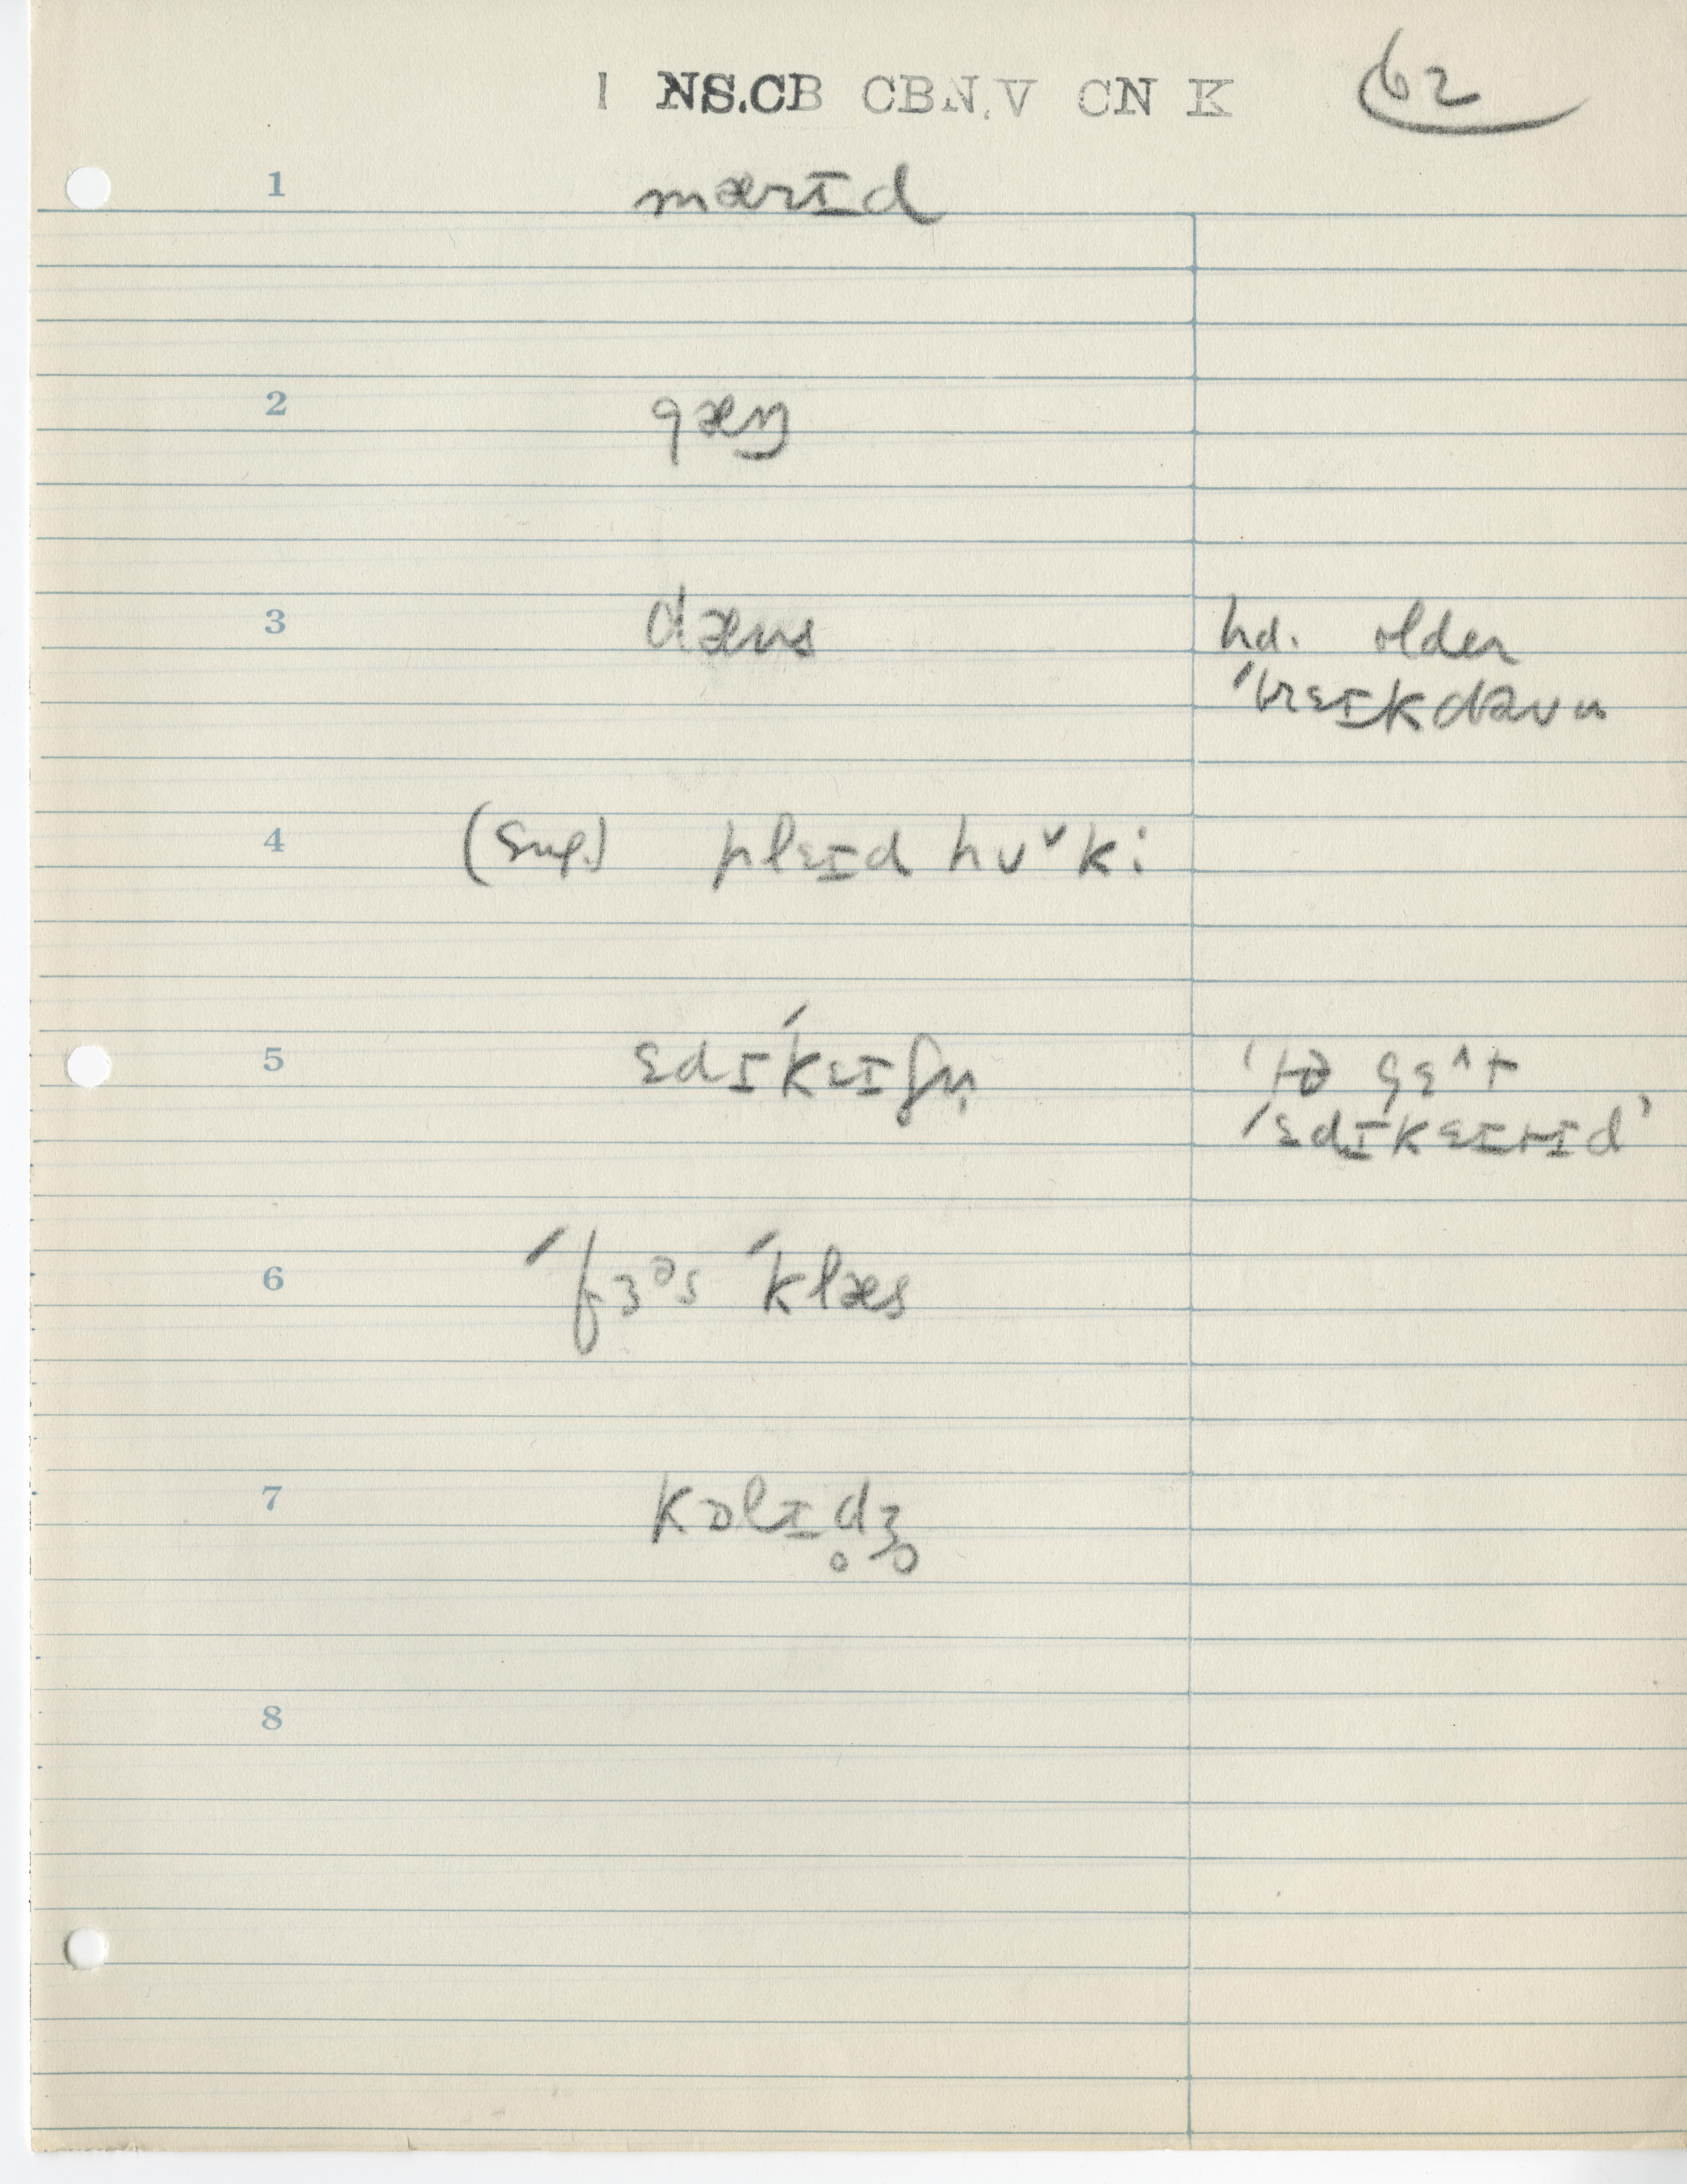 1 NS.CB CBN.V CN K 62
1 mærɪd
2 gæŋ
3 dæns hd. older
ˈbrɛɪkdaʊn
4 (Sug.) plɛɪd hʊˇki:
5 ɛdɪˈkɛɪʃn̩ 'tə gɛ^t
ˈɛdɪkɛɪtɪd'
6 ˈfɜᵊs ˈklæs
7 kɒlɪd̥ʒ̊
8